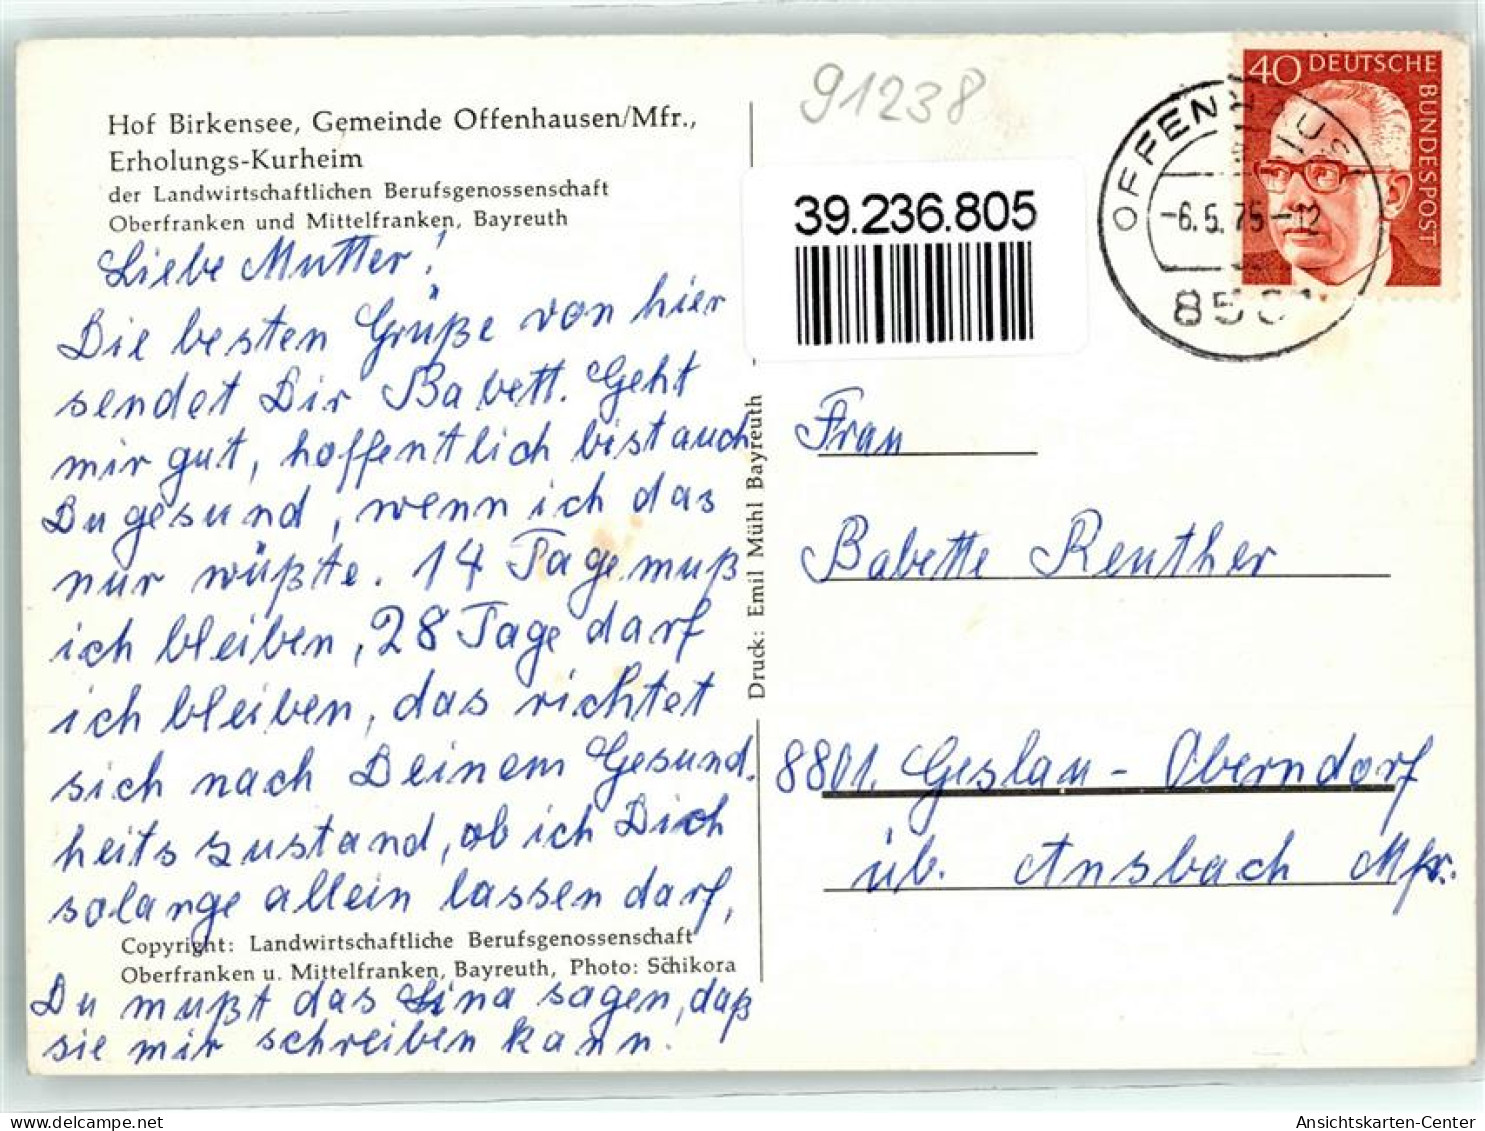 Hof Birkensee, Gemeinde Offenhausen/Mfr.,
Erholungs-Kurheim
der Landwirtschaftlichen Berufsgenossenschaft
Oberfranken und Mittelfranken, Bayreuth
Liebe Mutter!
Die besten Grüße von hier
sendet Dir Babett. Geht
mir gut, hoffentlich bist auch
Du gesund, wenn ich das
nur wüßte. 14 Tage muß
ich bleiben, 28 Tage darf
ich bleiben, das richtet
sich nach Deinem Gesund-
heitszustand, ob ich Dich
solange allein lassen darf,
Copyright: Landwirtschaftliche Berufsgenossenschaft
Oberfranken u. Mittelfranken, Bayreuth, Photo: Schikora
Du mußt das Lina sagen, daß
sie mir schreiben kann.
Druck: Emil Mühl Bayreuth
91238
39.236.805
40 DEUTSCHE
BUNDESPOST
-6.5.75-12
Frau
Babette Reuther
8801. Geslau - Oberndorf
üb. Ansbach Mfr.
Ansichtskarten-Center